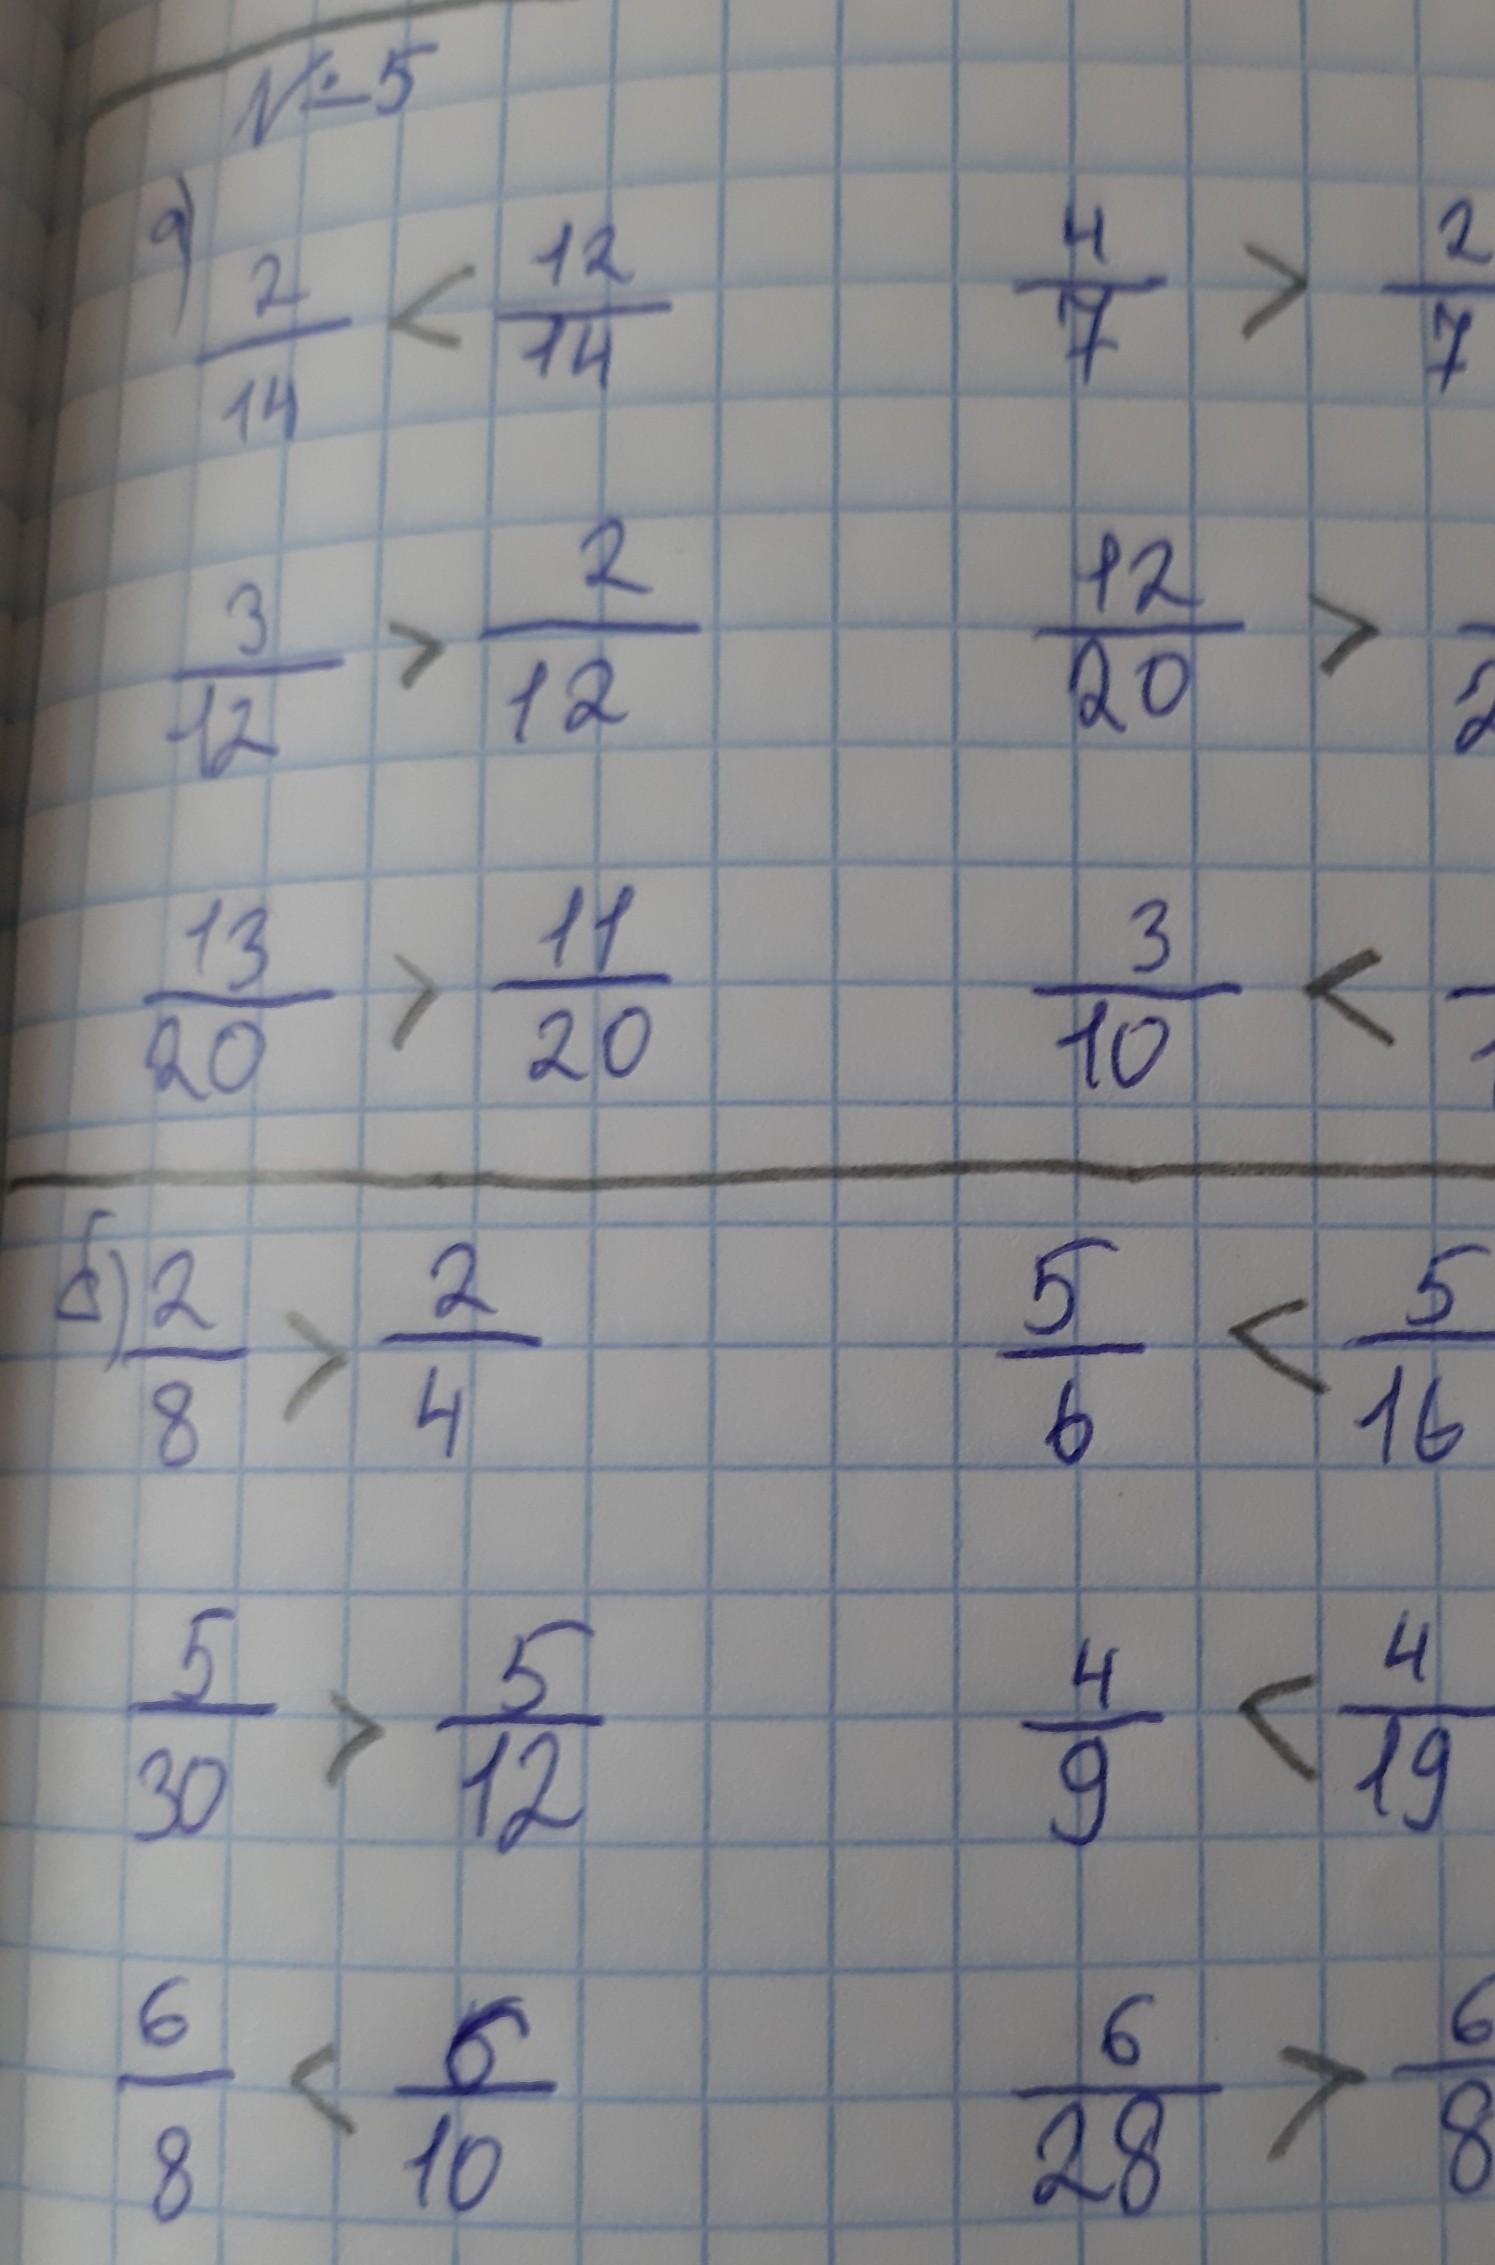 №5
а) 2/14 < 12/14   4/7 > 2/7
3/12 > 2/12   12/20 > /2
13/20 > 11/20   3/10 < /1
б) 2/8 > 2/4   5/6 < 5/16
5/30 > 5/12   4/9 < 4/19
6/8 < 6/10   6/28 > 6/8